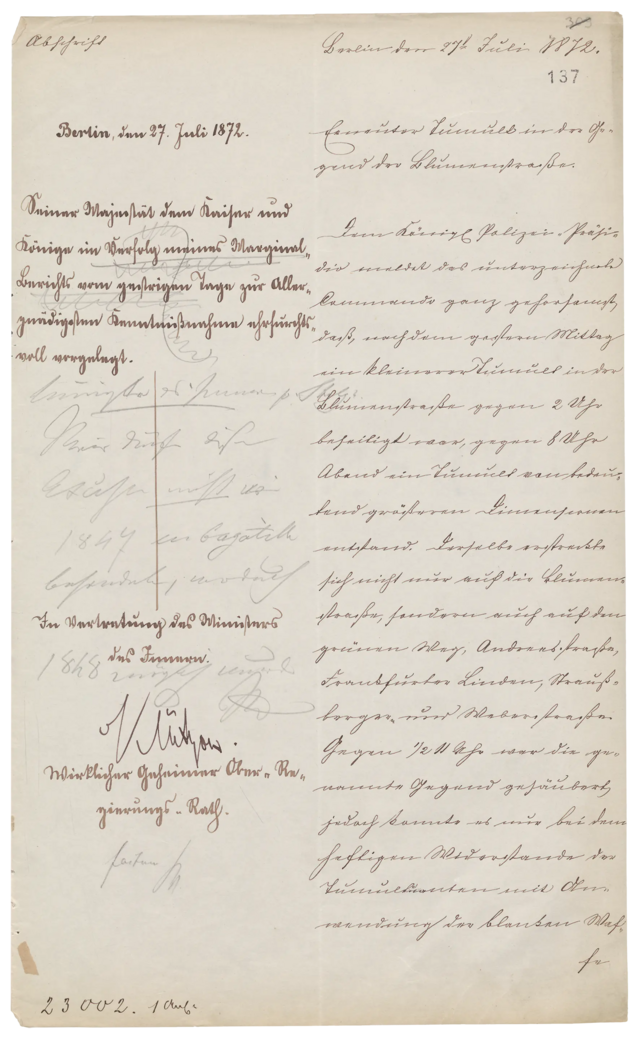 Abschrift
Berlin, den 27. Juli 1872.
Seiner Majestät dem Kaiser und
Könige im Verfolg meines Marginal-
Berichts vom gestrigen Tage zur Aller-
gnädigsten Kenntnißnahme ehrfurchts-
voll vorgelegt.
1847 en bagatelle
behandelt, wodurch
In Vertretung des Ministers
des Innern.
1848 möglich wurde
Wirklicher Geheimer Ober-Re-
gierungs-Rath.
23002. 1 Anl.
Berlin den 27t Juli 1872.
137
Erneuter Tumult in der Ge-
gend der Blumenstraße.
Dem Königl Polizei-Präsi-
dio meldet das unterzeichnete
Commando ganz gehorsamst,
daß, nachdem gestern Mittag
ein kleinerer Tumult in der
Blumenstraße gegen 2 Uhr
beseitigt war, gegen 8 Uhr
Abend ein Tumult von bedeu-
tend größeren Dimensionen
entstand. Derselbe erstreckte
sich nicht nur auf die Blumen-
straße, sondern auch auf den
grünen Weg, Andreasstraße,
Frankfurter Linden, Strauß-
berger- und Weberstraße.
Gegen 1/2 11 Uhr war die ge-
nannte Gegend gesäubert,
jedoch konnte es nur bei dem
heftigen Widerstande der
Tumultuanten mit An-
wendung der blanken Waf-
fe